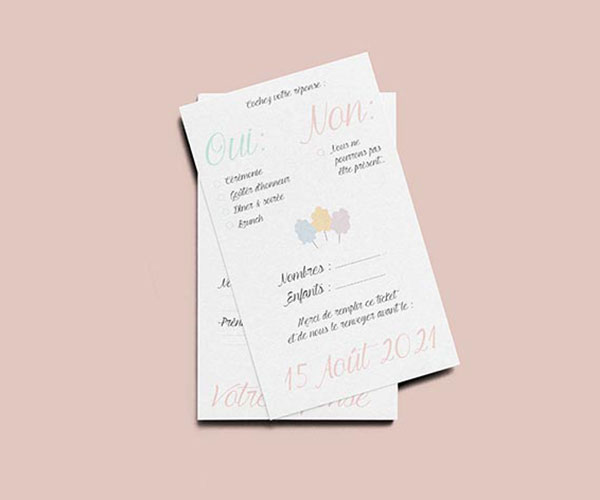 Cochez votre réponse :
Oui:
Non:
Cérémonie
Goûter d'honneur
Dîner & soirée
Brunch
Nous ne
pourrons pas
être présent...
Nombres :
Enfants :
Merci de remplir ce ticket
et de nous le renvoyer avant le :
15 Août 2021
Votre